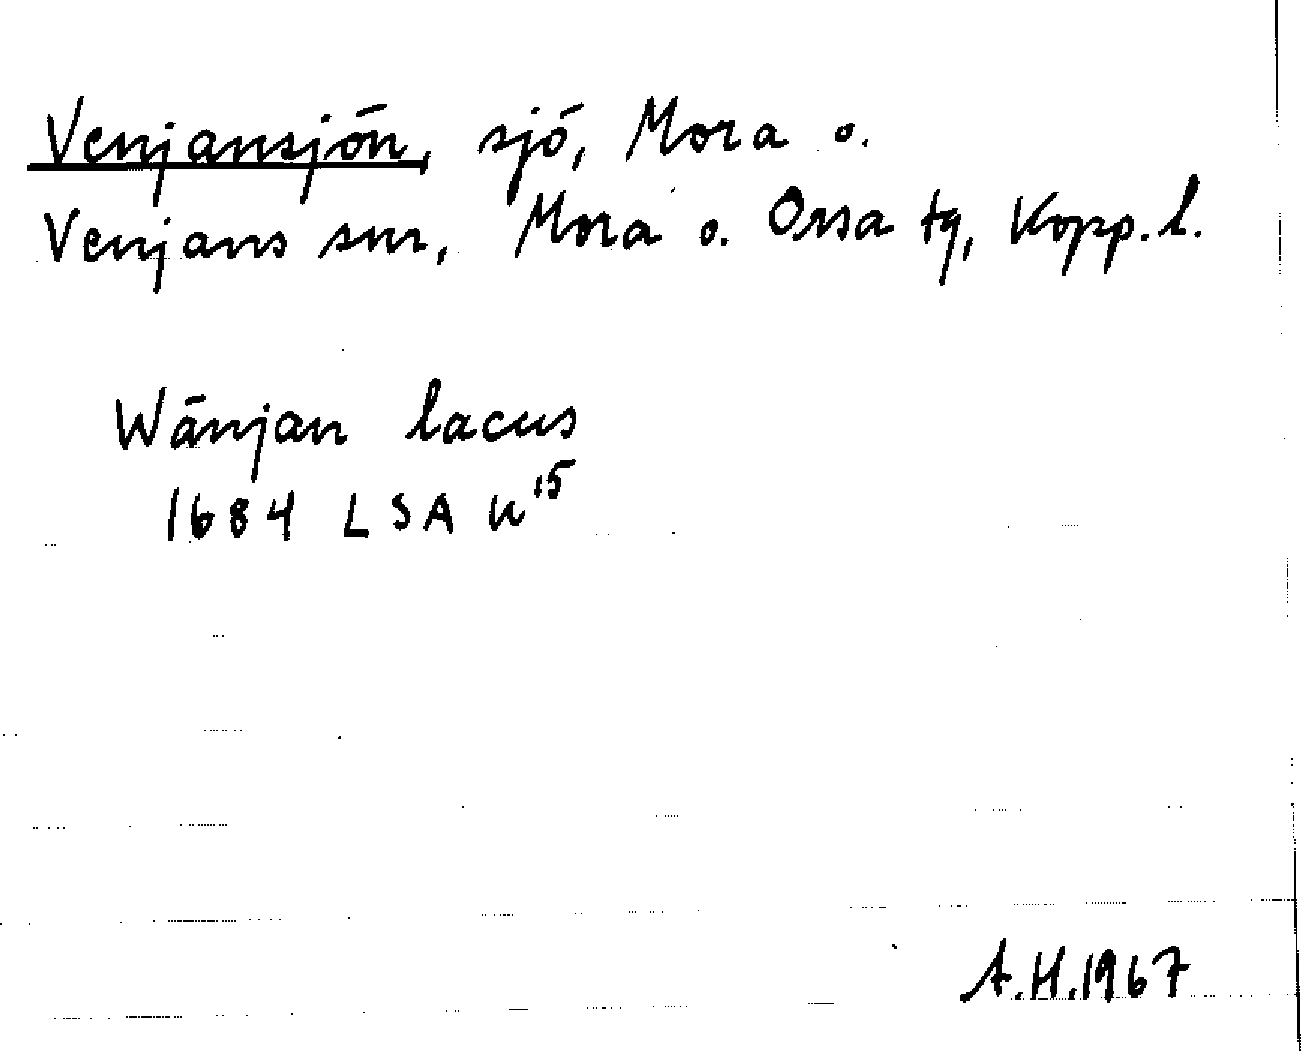 Venjansjön, sjö, Mora o.
Venjans snr, Mora o. Orsa tg, Kopp. l.
Wänjan lacus
1684 LSA U¹⁵
A.H. 1967